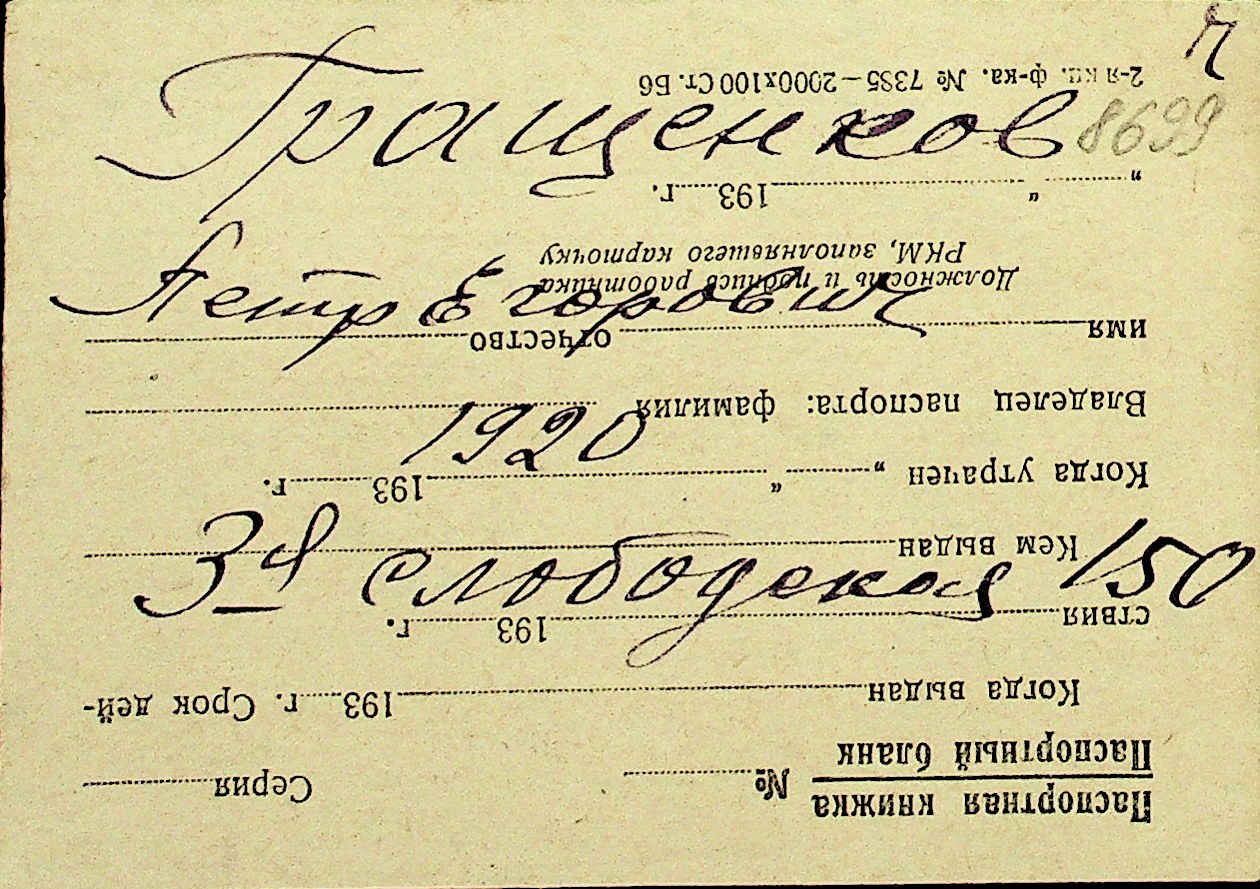 ч
Гращенков 8699
Петр Егорович
1920
3я слободская 150
Паспортная книжка
Паспортный бланк
№ Серия
Когда выдан 193 г. Срок дей-
ствия 193 г.
Кем выдан
Когда утрачен „ “ 193 г.
Владелец паспорта: фамилия
имя отчество
Должность и подпись работника
РКМ, заполнявшего карточку
„ “ 193 г.
2-я кц. ф-ка. № 7385—2000х100 Ст. Б6